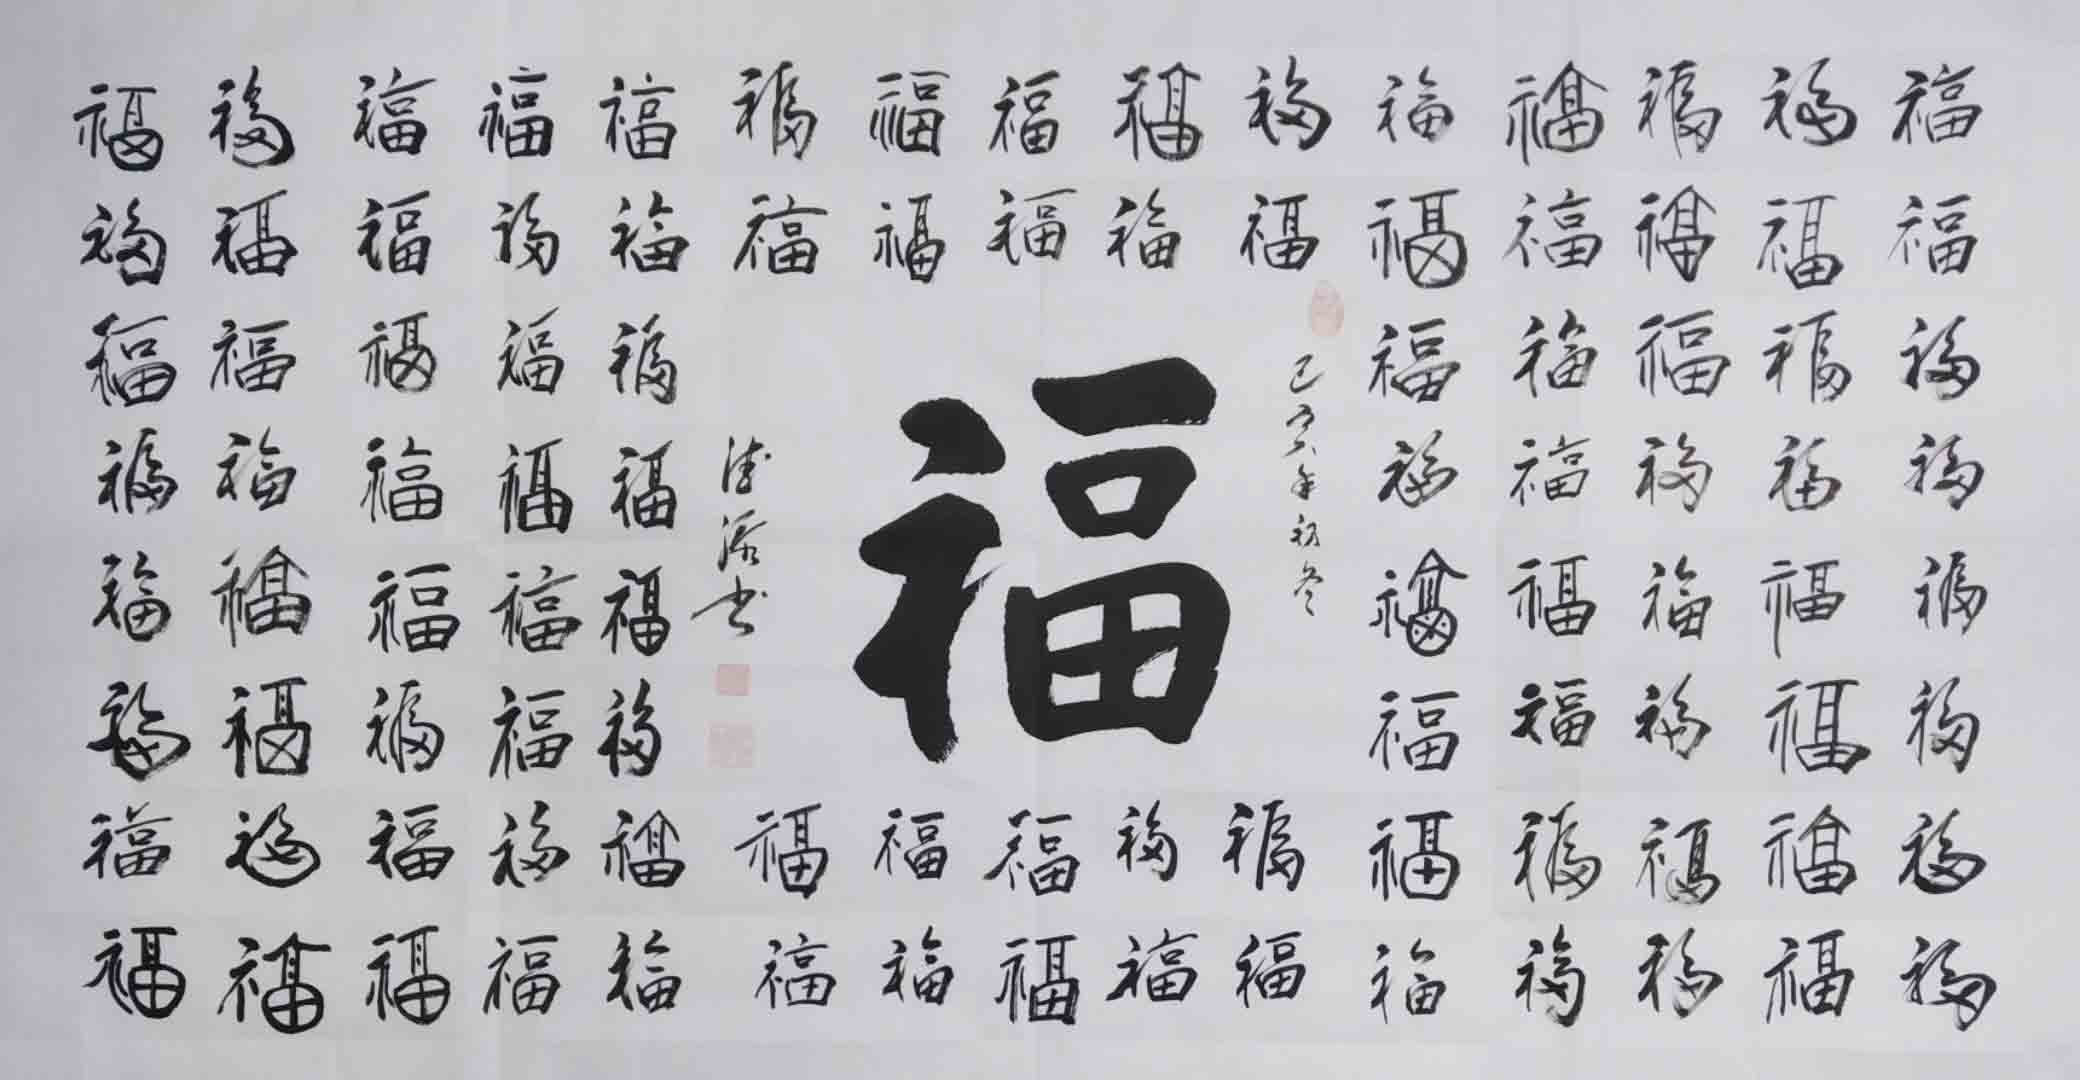 福福福福福福福福福福福福福福福
福福福福福福福福福福福福福福福
福福福福福
福福福福福
福福福福福
福福福福福
己亥年初冬
福
德 书
福福福福福
福福福福福
福福福福福
福福福福福
福福福福福福福福福福福福福福福
福福福福福福福福福福福福福福福